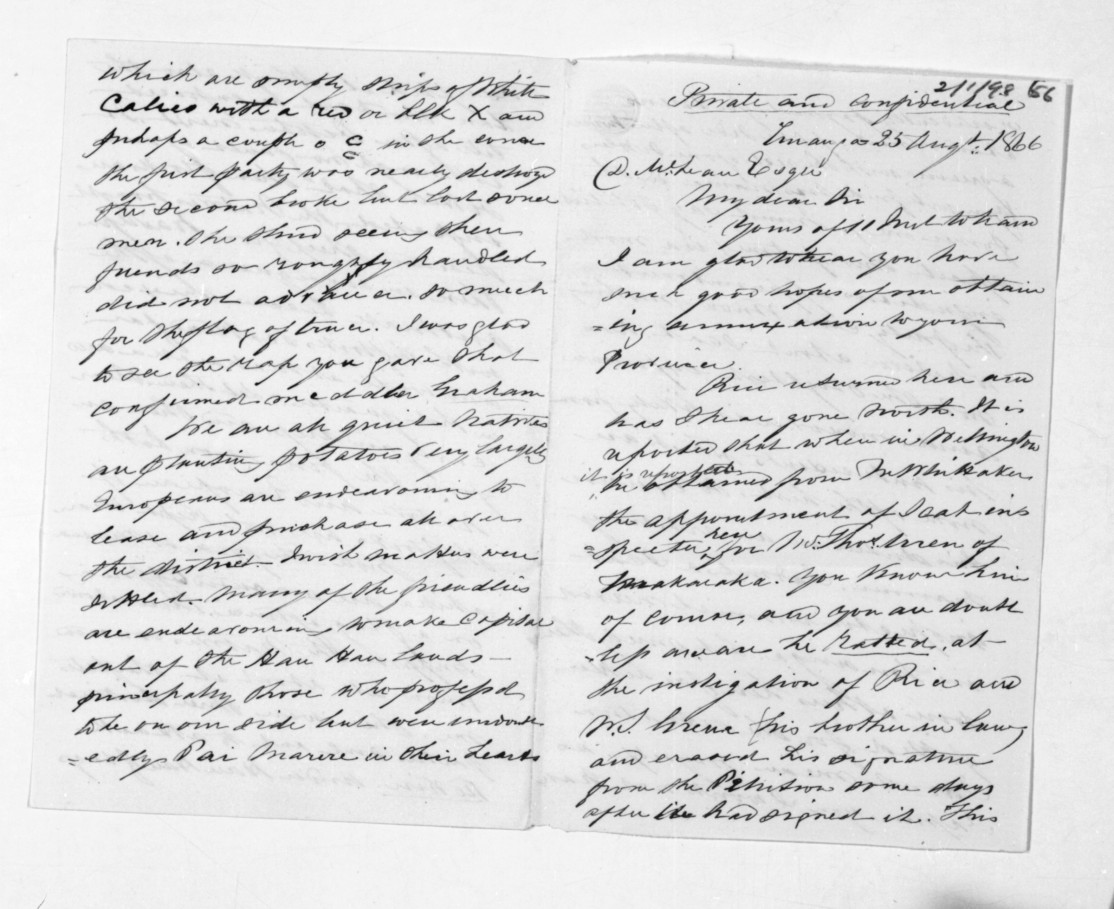 which are simply strips of White
Calico with a red or blk X and
perhaps a couple o C in the corner
the first party was nearly destroyed
the second broke but lost some
men. The third seeing their
friends so roughly handled
did not advance. So much
for the flag of truce. I was glad
to see the Rap you gave that
confirmed meddler Graham
We are all quiet Natives
are planting potatoes very largely
Europeans are endeavoring to
lease and purchase all over
the district. I wish matters were
settled. Many of the friendlies
are endeavoring to make capital
out of the Hau Hau lands –
principally those who professed
to be on our side but were undoubt
=edly Pai Marire in their hearts
2/1/98 56
Private and confidential
Turanga 25 Augt. 1866
D. McLean Esqre
My dear Sir
Yours of 11 Inst to hand
I am glad to hear you have
such good hopes of our obtain
=ing annexation to your
Province.
Rice returned here and
has I hear gone North. It is
reported that when in Wellington
it is reported
he obtained from Mr Whitaker
the appointment of Scab ins
=pector here for Mr. Thos. Uren of
Makaraka. You know him
of course, and you are doubt
=less aware he Ratted, at
the instigation of Rice and
W. S. Greene (his brother in law)
and erased his signature
from the Petition some days
after he had signed it. This